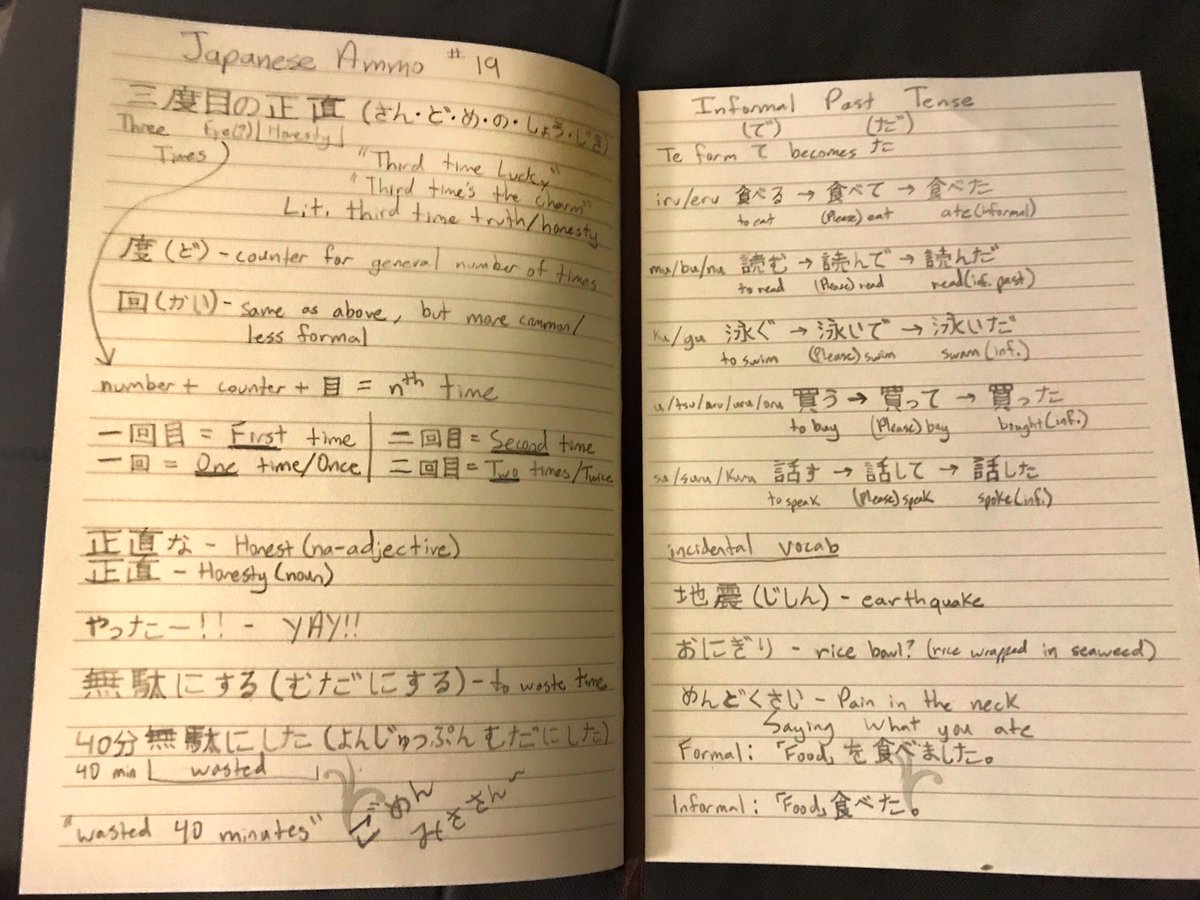 Japanese Ammo #19
三度目の正直 (さん・ど・め・の・しょう・じき)
Three Eye(?) Honesty
Times
"Third time Lucky"
"Third time's the charm"
Lit. third time truth/honesty
度(ど) - counter for general number of times
回(かい) - same as above, but more common/
less formal
number + counter + 目 = nth time
一回目 = First time | 二回目 = Second time
一回 = One time/Once | 二回目 = Two times/Twice
正直な - Honest (na-adjective)
正直 - Honesty (noun)
やったー!! - YAY!!
無駄にする (むだにする) - to waste time
40分無駄にした (よんじゅっぷん むだにした)
40 min wasted
"wasted 40 minutes"
ごめん
みささん~
Informal Past Tense
(で) (だ)
Te form て becomes た
iru/eru 食べる → 食べて → 食べた
to eat (Please) eat ate (informal)
mu/bu/nu 読む → 読んで → 読んだ
to read (Please) read read (inf. past)
ku/gu 泳ぐ → 泳いで → 泳いだ
to swim (Please) swim swam (inf.)
u/tsu/aru/uru/oru 買う → 買って → 買った
to buy (Please) buy bought (inf.)
su/suru/kuru 話す → 話して → 話した
to speak (Please) speak spoke (inf.)
incidental vocab
地震 (じしん) - earthquake
おにぎり - rice bowl? (rice wrapped in seaweed)
めんどくさい - Pain in the neck
Saying what you ate
Formal: 「Food」を食べました。
Informal: 「Food」食べた。